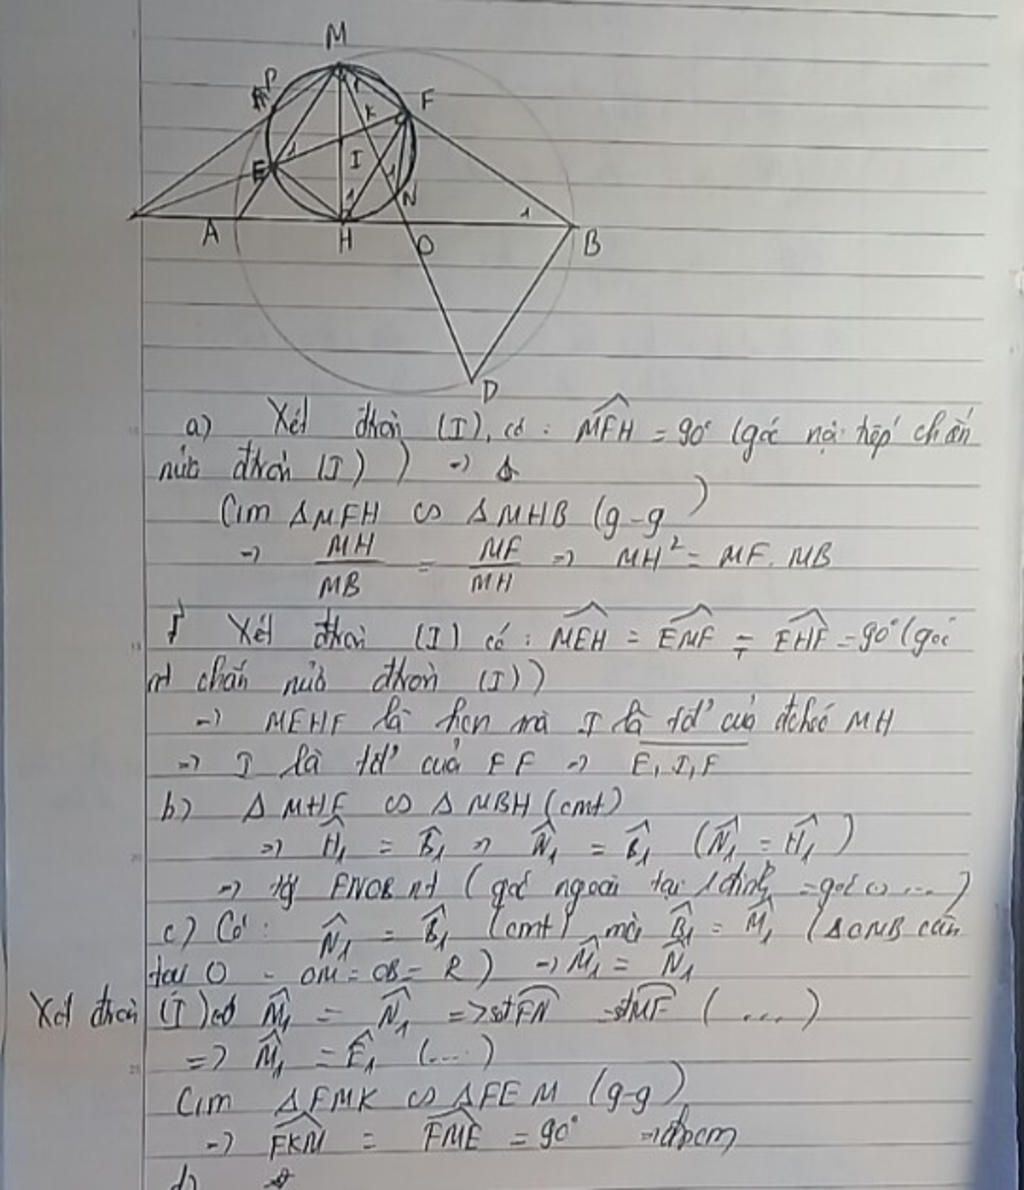 M
P
F
K
E
1
I
1
1
N
1
A
H
O
B
D
a) Xét đtròn (I), có : MFH = 90° (góc nội tiếp chắn
nửa đtròn (I) ) =>
C/m ΔMFH ∽ ΔMHB (g-g)
=> MH/MB = MF/MH => MH² = MF. MB
Xét đtròn (I) có : MEH = EMF = EHF = 90° (góc
nt chắn nửa đtròn (I))
=> MEHF là hcn mà I là tđ' của đchéo MH
=> I là tđ' của EF => E, I, F
b) Δ MHF ∽ Δ MBH (cmt)
=> H1 = B1 => N1 = B1 (N1 = H1)
=> tg FNOB nt (góc ngoài tại 1 đỉnh = góc ...)
c) Có : N1 = B1 (cmt) mà B1 = M1 (ΔOMB cân
tại O - OM = OB = R) => M1 = N1
Xét đtròn (I) có M1 = N1 => sđ FN = sđ MF (...)
=> M1 = E1 (...)
C/m ΔFMK ∽ ΔFEM (g-g)
=> FKM = FME = 90° => đpcm
d)